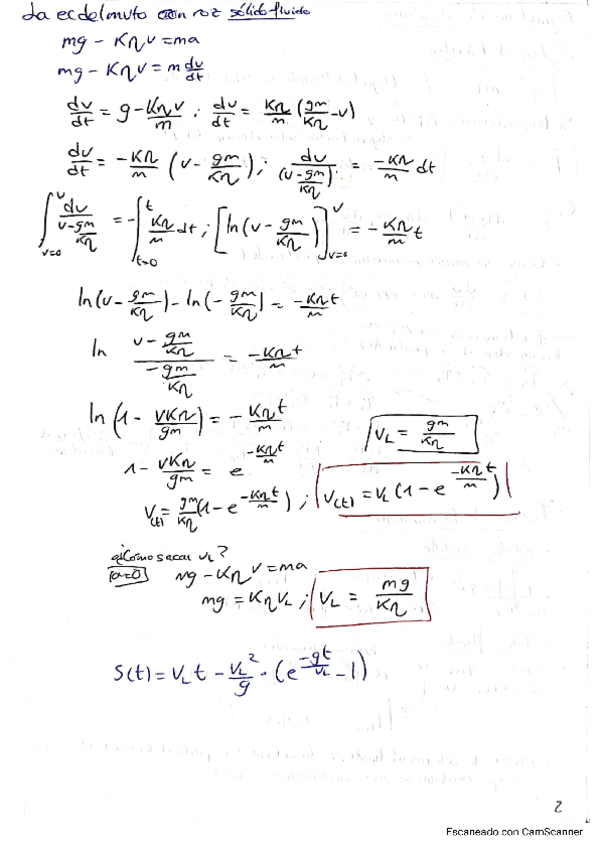 La ec del mvto con roz sólido fluido
mg - Kηv = ma
mg - Kηv = m dv/dt
dv/dt = g - Kηv/m ; dv/dt = Kη/m (gm/Kη - v)
dv/dt = -Kη/m (v - gm/Kη) ; dv/(v - gm/Kη) = -Kη/m dt
∫_{v=0}^{v} dv/(v - gm/Kη) = -∫_{t=0}^{t} Kη/m dt ; [ln(v - gm/Kη)]_{v=0}^{v} = -Kη/m t
ln(v - gm/Kη) - ln(-gm/Kη) = -Kη/m t
ln (v - gm/Kη)/(-gm/Kη) = -Kη/m t
ln(1 - vKη/gm) = -Kη/m t
V_L = gm/Kη
1 - vKη/gm = e^{-Kη/m t}
V(t) = gm/Kη (1 - e^{-Kη/m t}) ; V(t) = V_L (1 - e^{-Kη/m t})
¿Cómo sacar V_L?
a=0 mg - Kηv = ma
mg = KηV_L ; V_L = mg/Kη
S(t) = V_L t - V_L²/g · (e^{-gt/V_L} - 1)
2
Escaneado con CamScanner